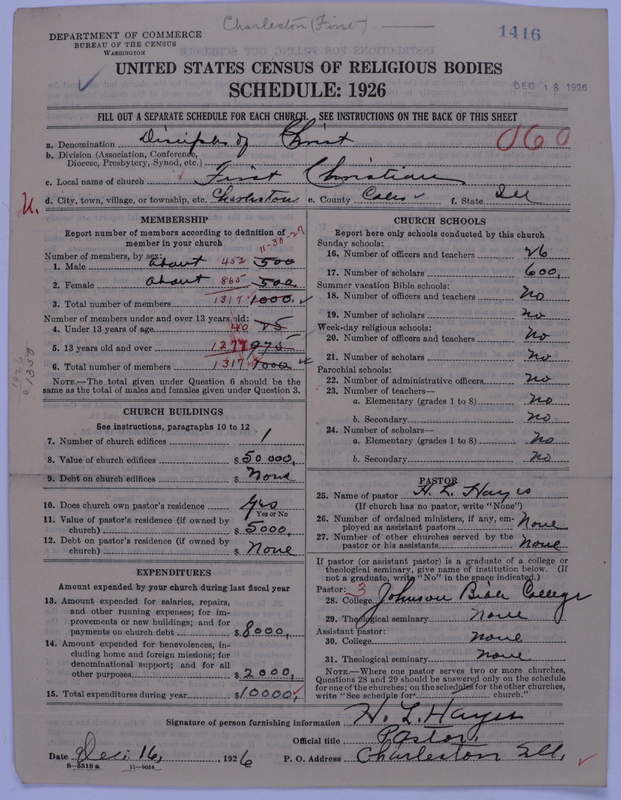 Charleston (First)
1416
DEPARTMENT OF COMMERCE
BUREAU OF THE CENSUS
WASHINGTON
UNITED STATES CENSUS OF RELIGIOUS BODIES
SCHEDULE: 1926
DEC 18 1926
FILL OUT A SEPARATE SCHEDULE FOR EACH CHURCH. SEE INSTRUCTIONS ON THE BACK OF THIS SHEET
060
a. Denomination Disciples of Christ
b. Division (Association, Conference, Diocese, Presbytery, Synod, etc.)
c. Local name of church First Christian
d. City, town, village, or township, etc. Charleston e. County Coles f. State Ill
MEMBERSHIP
Report number of members according to definition of member in your church
11-30-27
Number of members, by sex:
1. Male about 452 500
2. Female about 865 500
3. Total number of members 1317 1000
Number of members under and over 13 years old:
4. Under 13 years of age 40 25
5. 13 years old and over 1277 975
6. Total number of members 1317 1000
NOTE.—The total given under Question 6 should be the same as the total of males and females given under Question 3.
CHURCH BUILDINGS
See instructions, paragraphs 10 to 12
7. Number of church edifices 1
8. Value of church edifices $50000,
9. Debt on church edifices $None
10. Does church own pastor's residence Yes
Yes or No
11. Value of pastor's residence (if owned by church) $5000,
12. Debt on pastor's residence (if owned by church) $None
EXPENDITURES
Amount expended by your church during last fiscal year
13. Amount expended for salaries, repairs, and other running expenses; for improvements or new buildings; and for payments on church debt $8000,
14. Amount expended for benevolences, including home and foreign missions; for denominational support; and for all other purposes $2000,
15. Total expenditures during year $10000,
CHURCH SCHOOLS
Report here only schools conducted by this church
Sunday schools:
16. Number of officers and teachers 26
17. Number of scholars 600,
Summer vacation Bible schools:
18. Number of officers and teachers no
19. Number of scholars No
Week-day religious schools:
20. Number of officers and teachers No
21. Number of scholars No
Parochial schools:
22. Number of administrative officers No
23. Number of teachers—
a. Elementary (grades 1 to 8) No
b. Secondary No
24. Number of scholars—
a. Elementary (grades 1 to 8) No
b. Secondary No
PASTOR
25. Name of pastor H. L. Hayes
(If church has no pastor, write "None")
26. Number of ordained ministers, if any, employed as assistant pastors None
27. Number of other churches served by the pastor or his assistants None
If pastor (or assistant pastor) is a graduate of a college or theological seminary, give name of institution below. (If not a graduate, write "No" in the space indicated.)
Pastor: 3
28. College Johnson Bible College
29. Theological seminary None
Assistant pastor:
30. College None
31. Theological seminary None
NOTE.—Where one pastor serves two or more churches, Questions 28 and 29 should be answered only on the schedule for one of the churches; on the schedules for the other churches, write "See schedule for church."
Signature of person furnishing information H. L. Hayes
Official title Pastor.
Date Dec. 16, 1926 P. O. Address Charleston Ill.
8—5518a 11—9054